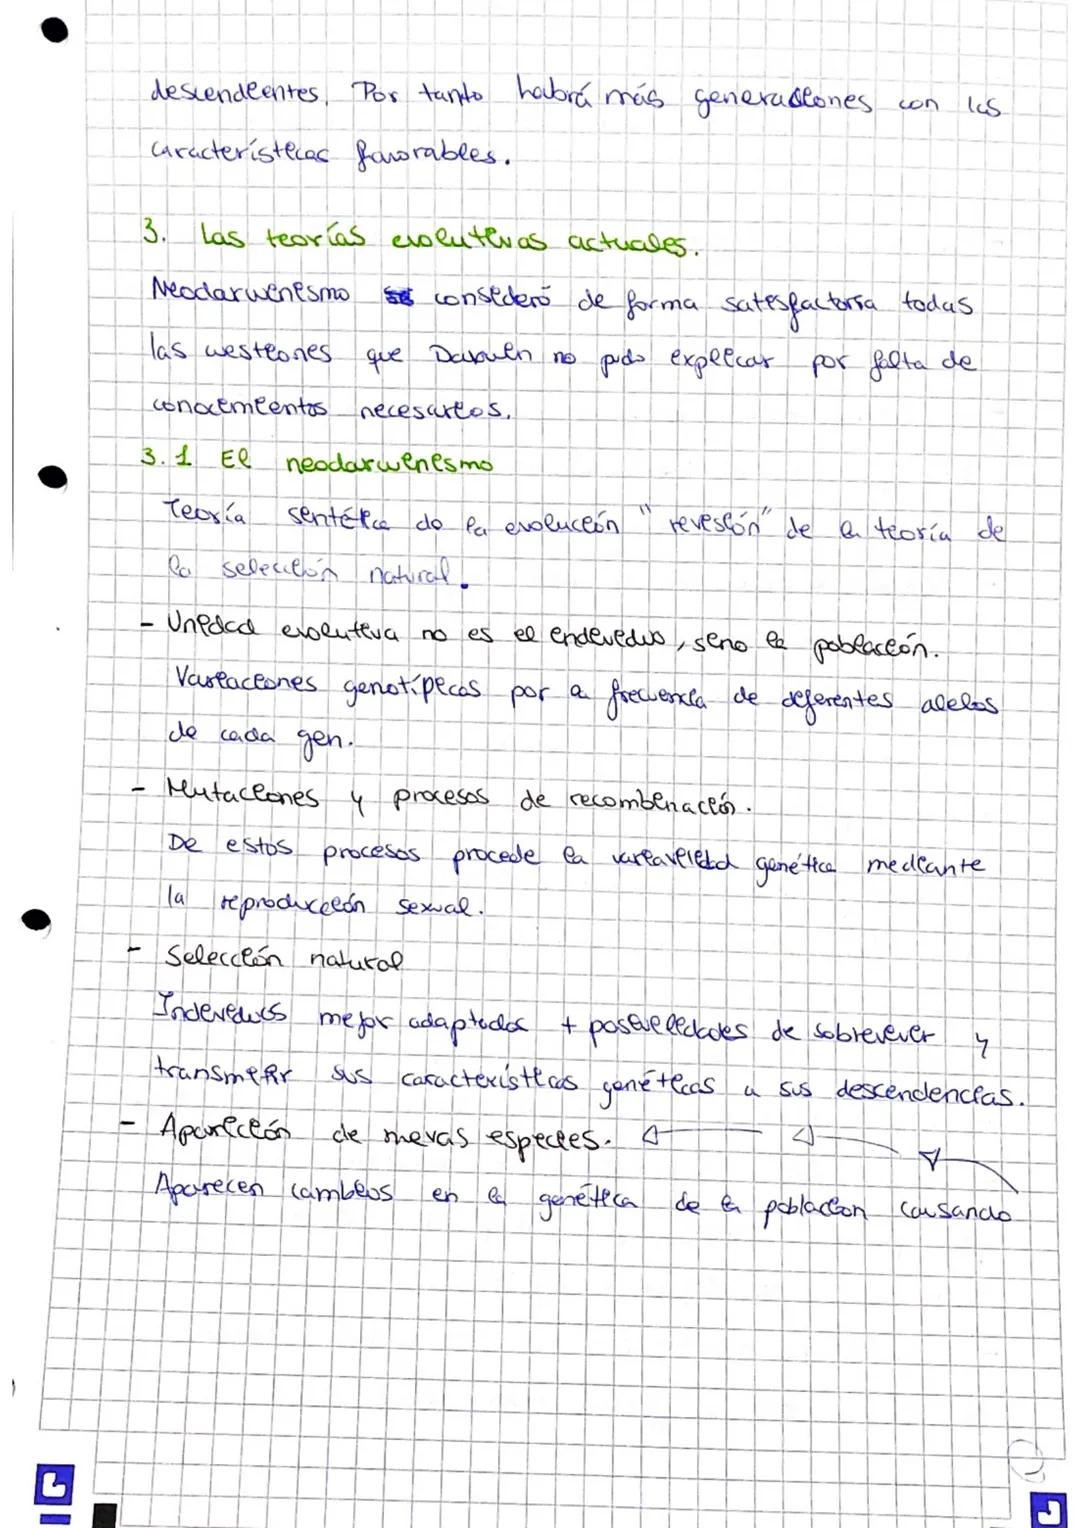 descendientes. Por tanto habrá más generaciones con las
características favorables.
3. Las teorías evolutivas actuales.
Neodarwinismo consideró de forma satisfactoria todas
las cuestiones que Darwin no pudo explicar por falta de
conocimientos necesarios.
3.1 El neodarwinismo
Teoría sintética de la evolución "revisión" de la teoría de
la selección natural.
- Unidad evolutiva no es el individuo, sino la población.
Variaciones genotípicas por la frecuencia de diferentes alelos
de cada gen.
- Mutaciones y procesos de recombinación.
De estos procesos procede la variavilidad genética mediante
la reproducción sexual.
- Selección natural
Individuos mejor adaptados + posivilidades de sobrevivir y
transmitir sus características genéticas a sus descendencias.
- Aparición de nuevas especies.
Aparecen cambios en la genética de la poblacion causando